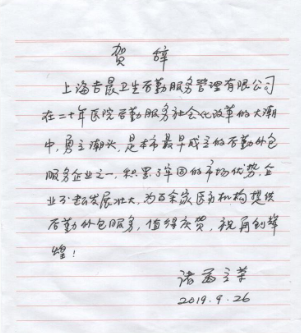 贺辞
上海吉晨卫生后勤服务管理有限公司
在二十年医院后勤服务社会化改革的大潮
中，勇立潮头，是本市最早成立的后勤外包
服务企业之一，积累了牢固的市场优势，企
业不断发展壮大，为百余家医疗机构提供
后勤外包服务，值得庆贺，祝再创辉
煌！
诸葛立荣
2019.9.26